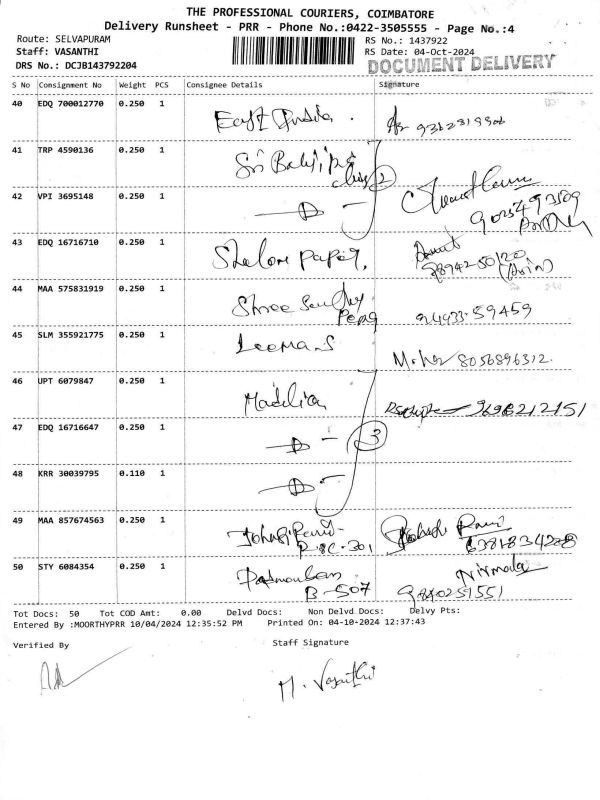 THE PROFESSIONAL COURIERS, COIMBATORE
Delivery Runsheet - PRR - Phone No.:0422-3505555 - Page No.:4
Route: SELVAPURAM
RS No.: 1437922
Staff: VASANTHI
RS Date: 04-Oct-2024
DRS No.: DCJB143792204
DOCUMENT DELIVERY
S No Consignment No Weight PCS Consignee Details Signature
40 EDQ 700012770 0.250 1
East India . 9362319506
41 TRP 4590136 0.250 1
Sri
2
42 VPI 3695148 0.250 1
D
9025493509
43 EDQ 16716710 0.250 1
98942 50120
44 MAA 575831919 0.250 1
Shree 59459
45 SLM 355921775 0.250 1
Leema.S
8056896312.
46 UPT 6079847 0.250 1
9698212151
47 EDQ 16716647 0.250 1
D 3
48 KRR 30039795 0.110 1
D
49 MAA 857674563 0.250 1
6381834208
50 STY 6084354 0.250 1
Nirmala
B-507 9840251551
Tot Docs: 50 Tot COD Amt: 0.00 Delvd Docs: Non Delvd Docs: Delvy Pts:
Entered By :MOORTHYPRR 10/04/2024 12:35:52 PM Printed On: 04-10-2024 12:37:43
Verified By Staff Signature
M. Vasanthi